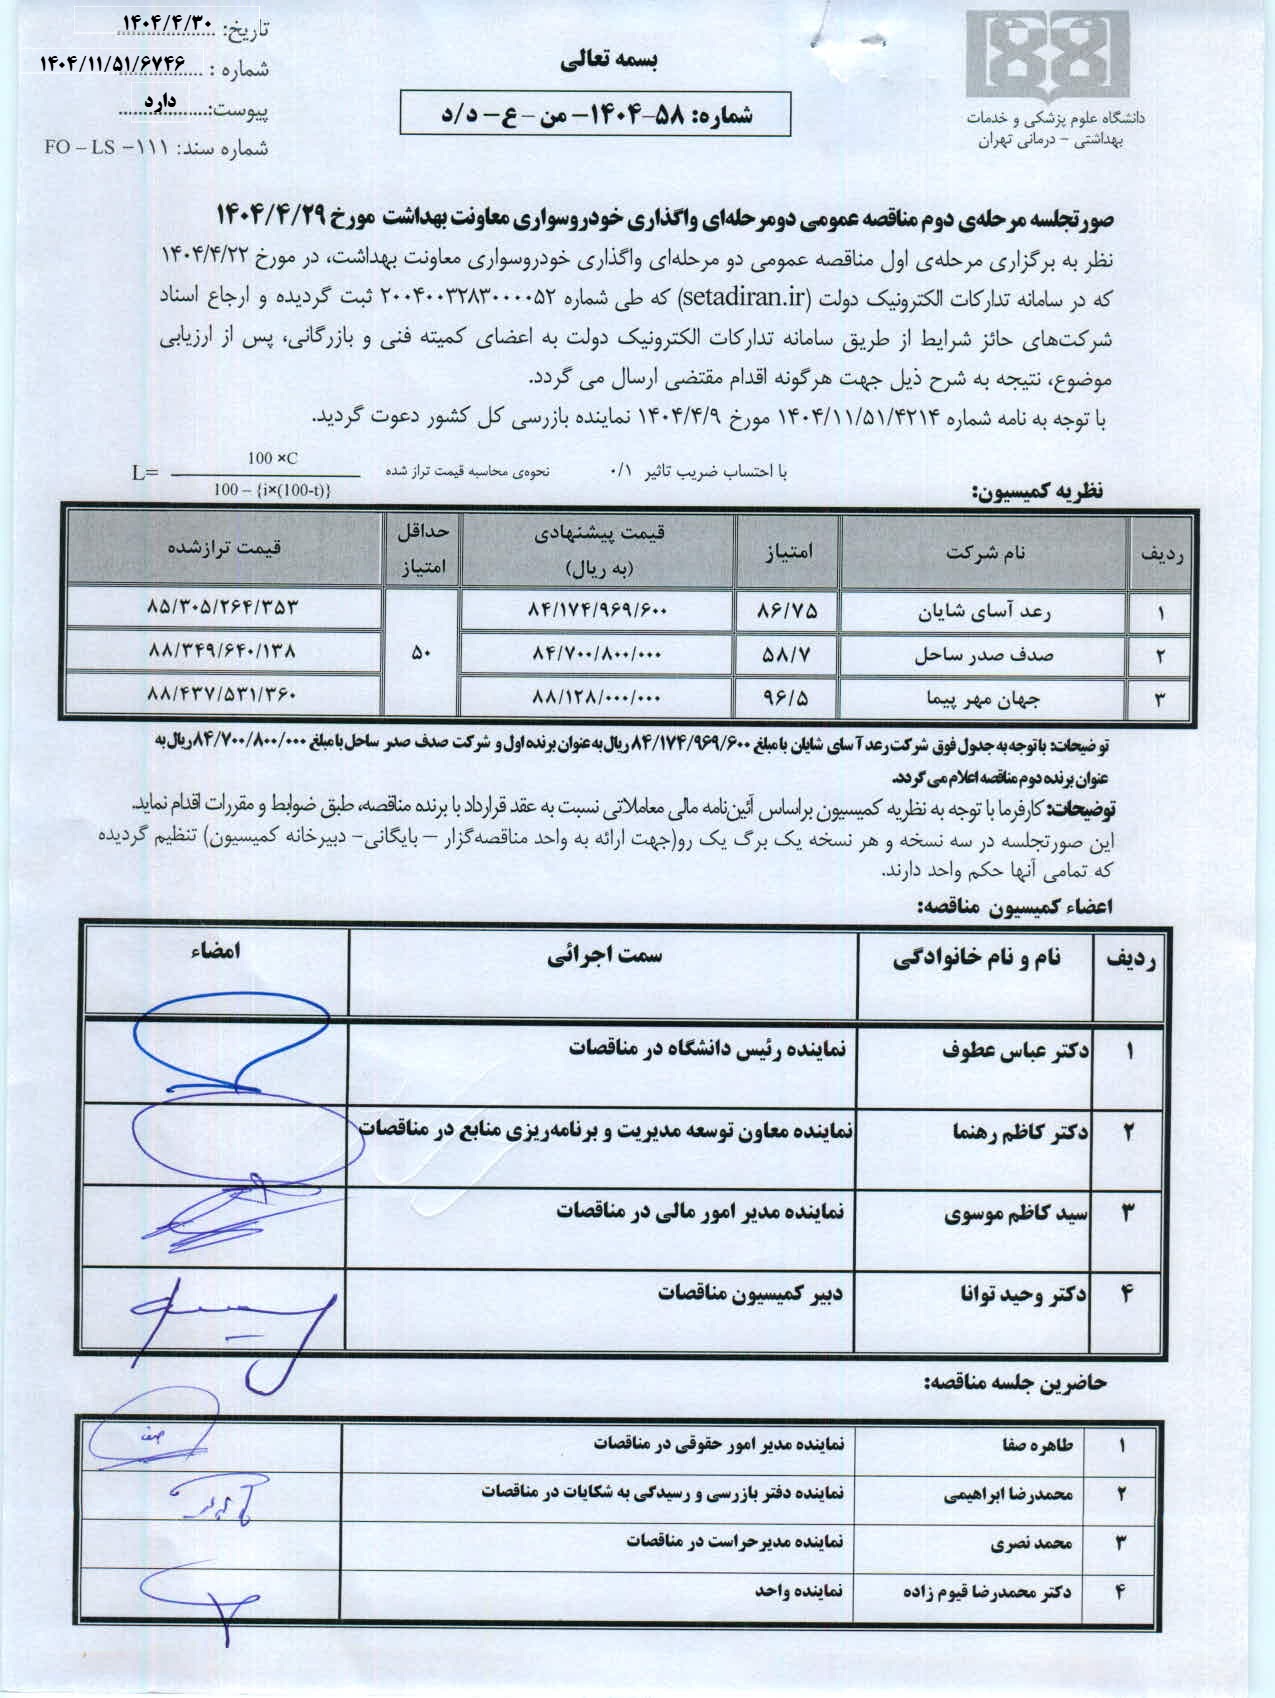 تاریخ: ۱۴۰۴/۴/۳۰
شماره : ۱۴۰۴/۱۱/۵۱/۶۷۴۶
پیوست: دارد
شماره سند: FO – LS –۱۱۱
بسمه تعالی
شماره: ۵۸-۱۴۰۴- من - ع- د/د
دانشگاه علوم پزشکی و خدمات
بهداشتی - درمانی تهران
صورتجلسه مرحله‌ی دوم مناقصه عمومی دومرحله‌ای واگذاری خودروسواری معاونت بهداشت مورخ ۱۴۰۴/۴/۲۹
نظر به برگزاری مرحله‌ی اول مناقصه عمومی دو مرحله‌ای واگذاری خودروسواری معاونت بهداشت، در مورخ ۱۴۰۴/۴/۲۲
که در سامانه تدارکات الکترونیک دولت (setadiran.ir) که طی شماره ۲۰۰۴۰۰۳۲۸۳۰۰۰۰۵۲ ثبت گردیده و ارجاع اسناد
شرکت‌های حائز شرایط از طریق سامانه تدارکات الکترونیک دولت به اعضای کمیته فنی و بازرگانی، پس از ارزیابی
موضوع، نتیجه به شرح ذیل جهت هرگونه اقدام مقتضی ارسال می گردد.
با توجه به نامه شماره ۱۴۰۴/۱۱/۵۱/۴۲۱۴ مورخ ۱۴۰۴/۴/۹ نماینده بازرسی کل کشور دعوت گردید.
با احتساب ضریب تاثیر ۰/۱ نحوه‌ی محاسبه قیمت تراز شده
L= 100 ×C
100 – {i×(100-t)}
نظریه کمیسیون:
ردیف نام شرکت امتیاز قیمت پیشنهادی (به ریال) حداقل امتیاز قیمت ترازشده
۱ رعد آسای شایان ۸۶/۷۵ ۸۴/۱۷۴/۹۶۹/۶۰۰ ۸۵/۳۰۵/۲۶۴/۳۵۳
۲ صدف صدر ساحل ۵۸/۷ ۸۴/۷۰۰/۸۰۰/۰۰۰ ۵۰ ۸۸/۳۴۹/۶۴۰/۱۳۸
۳ جهان مهر پیما ۹۶/۵ ۸۸/۱۲۸/۰۰۰/۰۰۰ ۸۸/۴۳۷/۵۳۱/۳۶۰
توضیحات: با توجه به جدول فوق شرکت رعد آسای شایان با مبلغ ۸۴/۱۷۴/۹۶۹/۶۰۰ ریال به عنوان برنده اول و شرکت صدف صدر ساحل با مبلغ ۸۴/۷۰۰/۸۰۰/۰۰۰ ریال به
عنوان برنده دوم مناقصه اعلام می گردد.
توضیحات: کارفرما با توجه به نظریه کمیسیون براساس آئین‌نامه مالی معاملاتی نسبت به عقد قرارداد با برنده مناقصه، طبق ضوابط و مقررات اقدام نماید.
این صورتجلسه در سه نسخه و هر نسخه یک برگ یک رو(جهت ارائه به واحد مناقصه‌گزار – بایگانی- دبیرخانه کمیسیون) تنظیم گردیده
که تمامی آنها حکم واحد دارند.
اعضاء کمیسیون مناقصه:
ردیف نام و نام خانوادگی سمت اجرائی امضاء
۱ دکتر عباس عطوف نماینده رئیس دانشگاه در مناقصات
۲ دکتر کاظم رهنما نماینده معاون توسعه مدیریت و برنامه‌ریزی منابع در مناقصات
۳ سید کاظم موسوی نماینده مدیر امور مالی در مناقصات
۴ دکتر وحید توانا دبیر کمیسیون مناقصات
حاضرین جلسه مناقصه:
۱ طاهره صفا نماینده مدیر امور حقوقی در مناقصات
۲ محمدرضا ابراهیمی نماینده دفتر بازرسی و رسیدگی به شکایات در مناقصات
۳ محمد نصری نماینده مدیرحراست در مناقصات
۴ دکتر محمدرضا قیوم زاده نماینده واحد